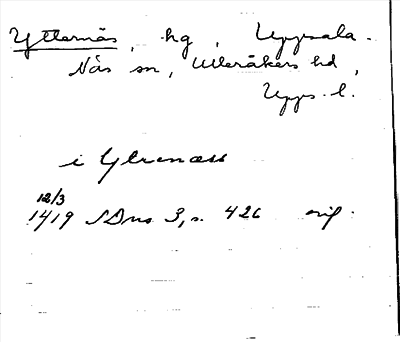 Ytternäs, hg, Uppsala-
Näs sn, Ulleråkers hd,
Upps. l.
i Ytrenæss
12/3
1419 SDns 3, s. 426 orig.